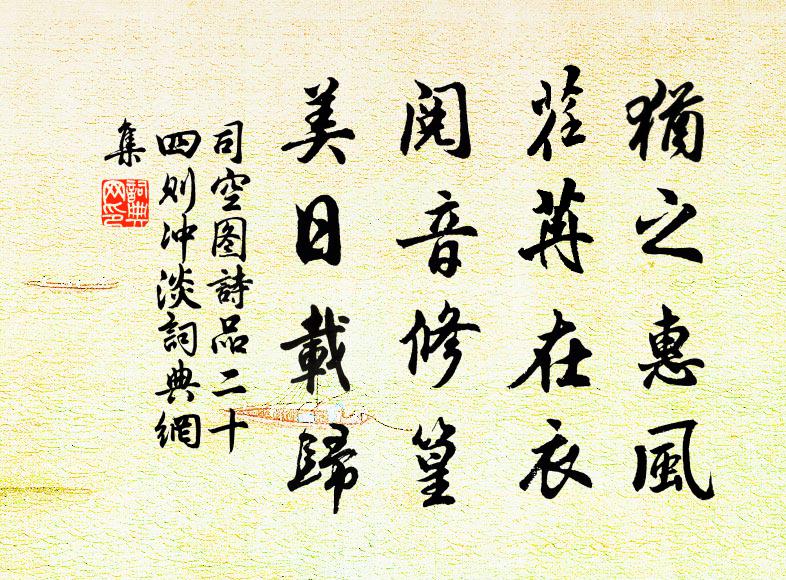 猶之惠風
荏苒在衣
閱音修篁
美日載歸
司空图詩品二十
四则冲淡詞典網
集
詞典
网印